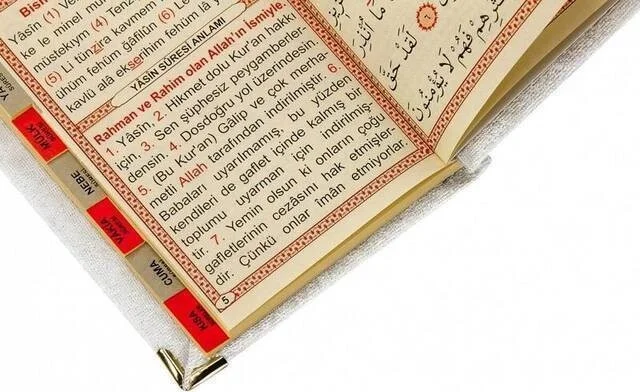 Yâsîn (1)
ke le minel
müstekıym (4)
(5) Li tünzira kavmem
ühüm fehüm ğâfilûn (6)
kavlü alâ ekserihim fehüm lâ
YÂSÎN SÛRESİ ANLAMI
Rahman ve Rahim olan Allah'ın İsmiyle
1. Yâsin, 2. Hikmet dolu Kur'an hakkı
için. 3. Sen şüphesiz peygamberler-
densin. 4. Dosdoğru yol üzerindesin.
5. (Bu Kur'an) Gâlip ve çok merha-
metli Allah tarafından indirilmiştir. 6.
Babaları uyarılmamış, bu yüzden
kendileri de gaflet içinde kalmış bir
toplumu uyarman için indirilmiş-
tir. 7. Yemin olsun ki onların çoğu
gafletlerinin cezâsını hak etmişler-
dir. Çünkü onlar îmân etmiyorlar.
5
مَا أُنْذِرَ
لَقَدْ حَقَّ
فَهُمْ لَا يُؤْمِنُونَ
YA
MÜLK
NEBE
VAKIA
CUMA
KISA